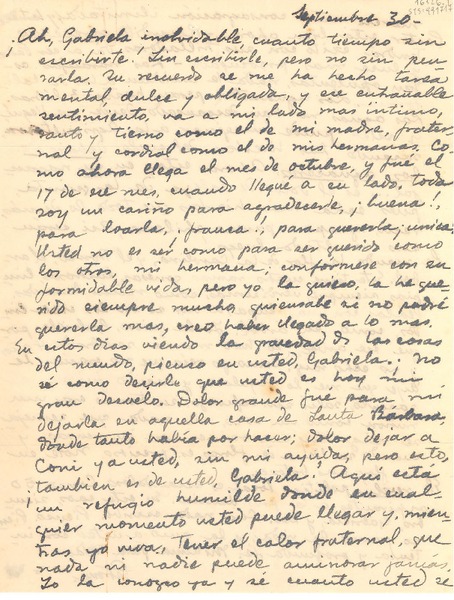 Septiembre 30-
¡Ah, Gabriela inolvidable, cuanto tiempo sin
escribirte! Sin escribirle, pero no sin pen
sarla. Su recuerdo se me ha hecho tarea
mental, dulce y obligada, y ese entrañable
sentimiento, va a mi lado mas íntimo,
santo y tierno como el de mi madre, frater
nal y cordial como el de mis hermanas. Co-
mo ahora llega el mes de octubre, y fué el
17 de ese mes, cuando llegué a su lado, toda
soy un cariño para agradecerle, ¡buena!,
para loarla, ¡franca!, para quererla; ¡unica!
Usted no es ser como para ser querido como
los otros, mi hermana; confórmese con su
formidable vida, pero yo la quiero, la he que
rido siempre mucho, quiensabe si no podré
quererla mas, creo haber llegado a lo mas.
En estos dias viendo la gravedad de las cosas
del mundo, pienso en usted, Gabriela. No
sé como decirle que usted es hoy mi
gran desvelo. Dolor grande fué para mi
dejarla en aquella casa de Santa Bárbara,
donde tanto habia por hacer; dolor dejar a
Coni y a usted, sin mi ayuda, pero esto,
tambien es de usted, Gabriela. Aqui está
un refugio humilde donde en cual-
quier momento usted puede llegar y, mien-
tras yo viva, tener el calor fraternal que
nada ni nadie puede aminorar jamás.
Yo la conozco ya y sé cuanto usted se